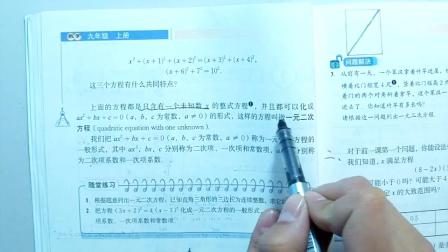 九年级 上册
x² + (x+1)² + (x+2)² = (x+3)² + (x+4)²,
(x+6)² + 7² = 10².
这三个方程有什么共同特点?
上面的方程都是只含有一个未知数 x 的整式方程❶, 并且都可以化成
ax² + bx + c = 0 (a, b, c 为常数, a ≠ 0) 的形式, 这样的方程叫做一元二次
方程 (quadratic equation with one unknown).
我们把 ax² + bx + c = 0 (a, b, c 为常数, a ≠ 0) 称为一元二次方程的
一般形式, 其中 ax², bx, c 分别称为二次项、一次项和常数项, a, b 分别称
为二次项系数和一次项系数.
随堂练习
1. 根据题意列出一元二次方程: 已知直角三角形的三边长为连续整数, 求它
2. 把方程 (3x+2)² = 4(x-3)² 化成一元二次方程的一般形式,
项系数、一次项系数和常数项.
问题解决
3. 从前有一天, 一个醉汉拿着竹竿进屋,
横着比门框宽 4 尺, 竖着比门框高 2
着门的两个对角斜着拿竿, 这个
进去了. 你知道竹竿有多长吗?
请根据这一问题列出一元二次方程.
对于前一课第一个问题, 你能设法
我们知道, x 满足方程
(8 - 2x)(5
(1) x 可能小于 0 吗? 可能大于 4
定 x 的大致范围吗?